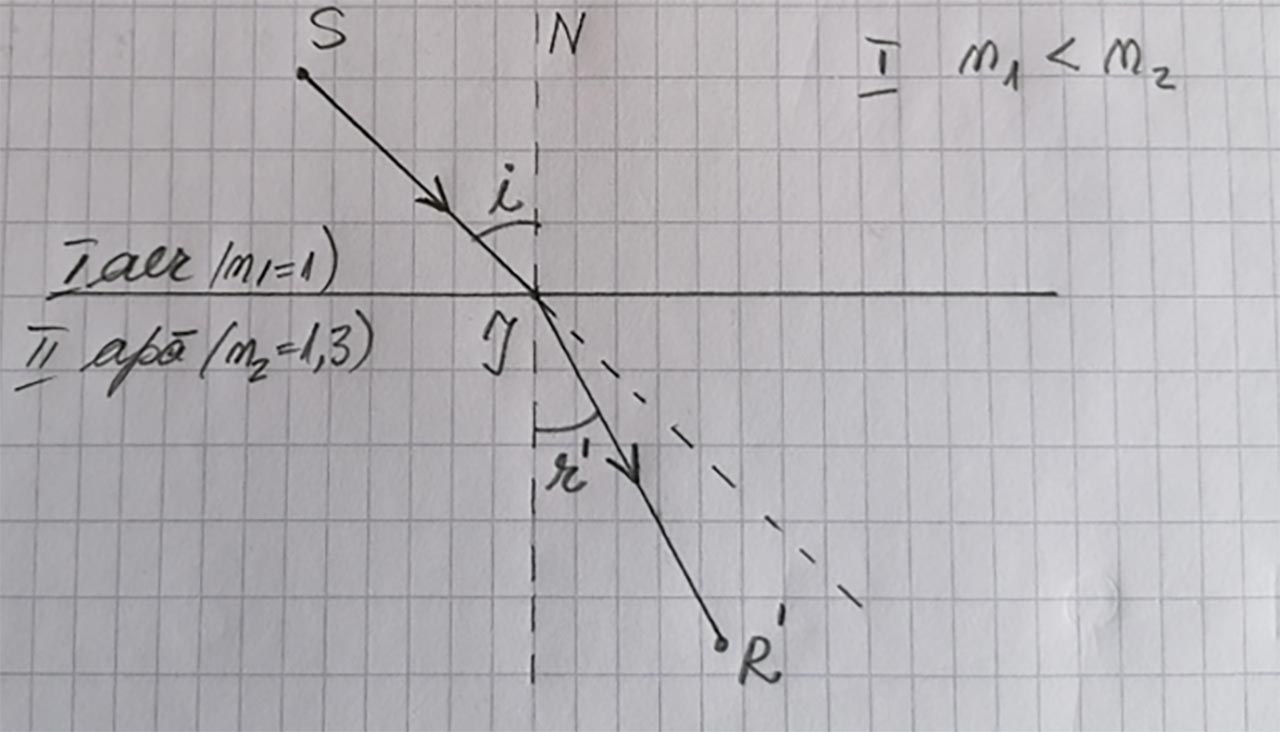 S
N
I n₁ < n₂
i
I aer (n₁=1)
II apă (n₂=1,3)
I
r'
R'